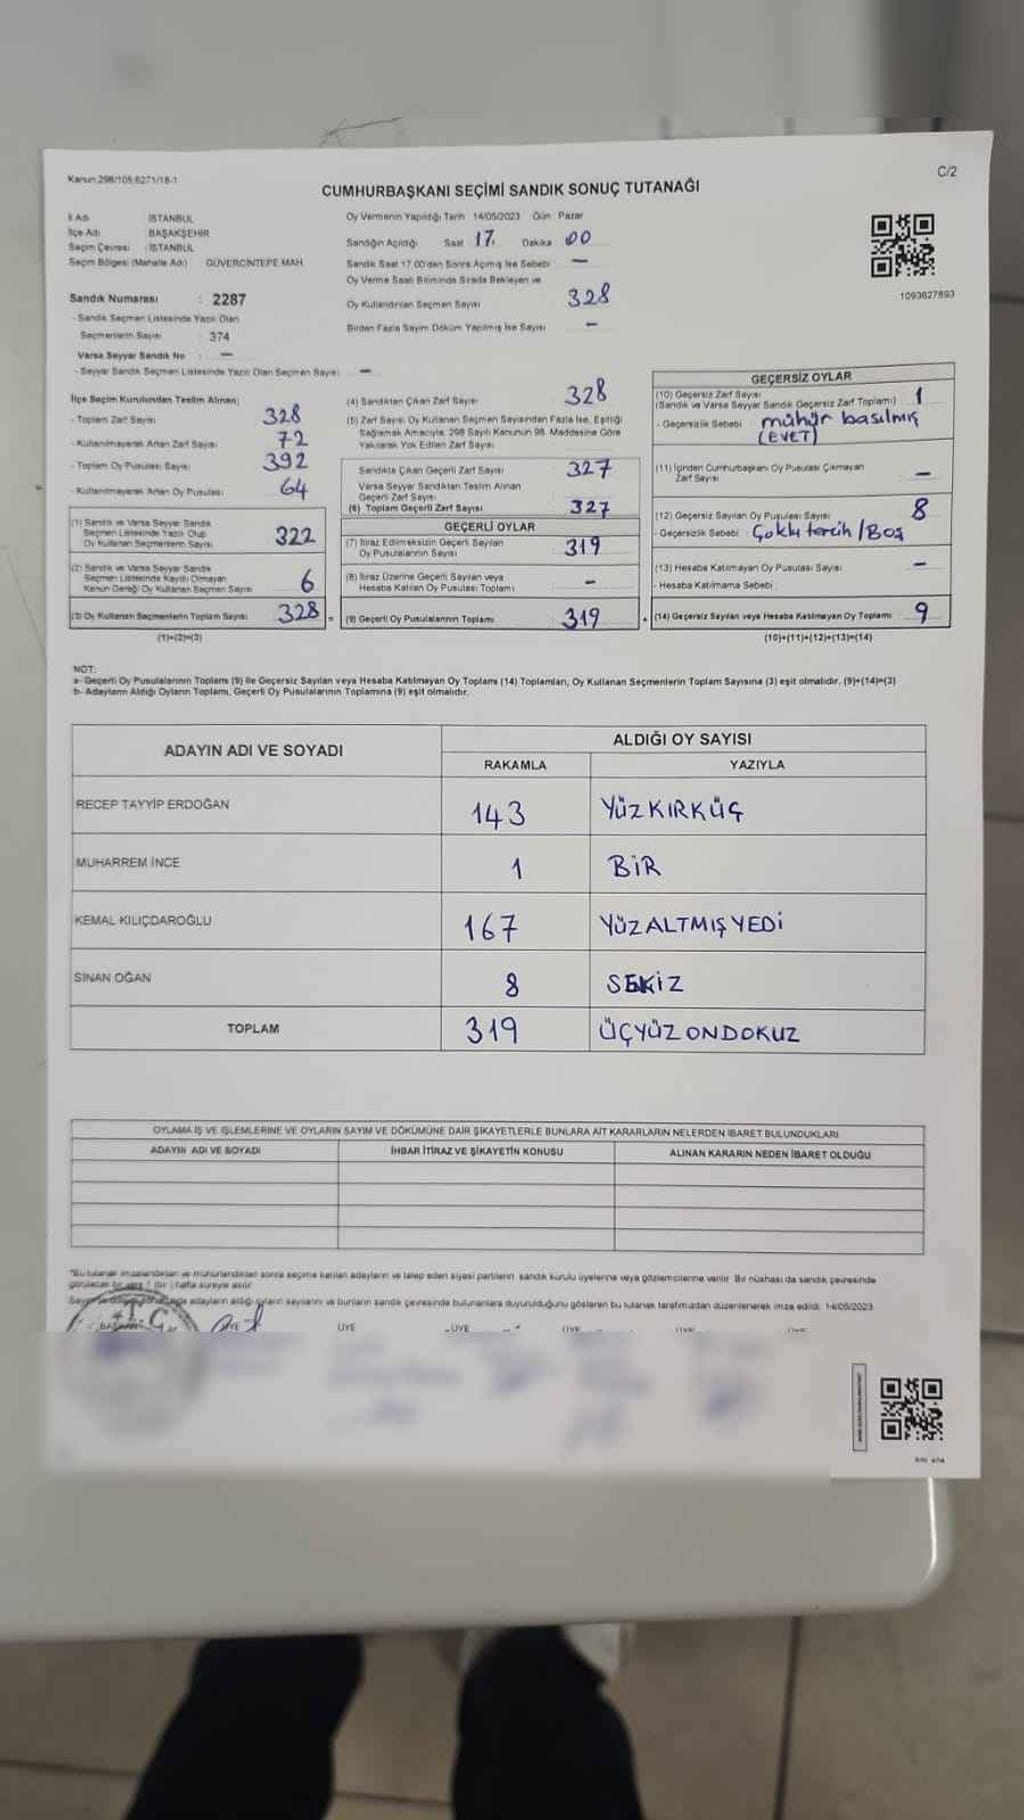 Kanun:298/105.6271/16-1
C/2
CUMHURBAŞKANI SEÇİMİ SANDIK SONUÇ TUTANAĞI
İl Adı İSTANBUL
İlçe Adı BAŞAKŞEHİR
Seçim Çevresi : İSTANBUL
Seçim Bölgesi (Mahalle Adı) GÜVERCİNTEPE MAH.
Sandık Numarası : 2287
- Sandık Seçmen Listesinde Yazılı Olan
Seçmenlerin Sayısı 374
Varsa Seyyar Sandık No : —
- Seyyar Sandık Seçmen Listesinde Yazılı Olan Seçmen Sayısı —
Oy Vermenin Yapıldığı Tarih 14/05/2023 Gün : Pazar
Sandığın Açıldığı Saat 17. Dakika 00
Sandık Saat 17.00'den Sonra Açımış İse Sebebi —
Oy Verme Saati Bitiminde Sırada Bekleyen ve
Oy Kullandırılan Seçmen Sayısı 328
Birden Fazla Sayım Döküm Yapılmış İse Sayısı —
1093627893
İlçe Seçim Kurulundan Teslim Alınan;
- Toplam Zarf Sayısı 328
- Kullanılmayarak Artan Zarf Sayısı 72
- Toplam Oy Pusulası Sayısı 392
- Kullanılmayarak Artan Oy Pusulası 64
(1) Sandık ve Varsa Seyyar Sandık
Seçmen Listesinde Yazılı Olup
Oy Kullanan Seçmenlerin Sayısı 322
(2) Sandık ve Varsa Seyyar Sandık
Seçmen Listesinde Kayıtlı Olmayan
Kanun Gereği Oy Kullanan Seçmen Sayısı 6
(3) Oy Kullanan Seçmenlerin Toplam Sayısı 328 =
(1)+(2)=(3)
(4) Sandıktan Çıkan Zarf Sayısı 328
(5) Zarf Sayısı Oy Kullanan Seçmen Sayısından Fazla İse, Eşitliği
Sağlamak Amacıyla, 298 Sayılı Kanunun 98. Maddesine Göre
Yakılarak Yok Edilen Zarf Sayısı
Sandıkta Çıkan Geçerli Zarf Sayısı 327
Varsa Seyyar Sandıktan Teslim Alınan
Geçerli Zarf Sayısı
(6) Toplam Geçerli Zarf Sayısı 327
GEÇERLİ OYLAR
(7) İtiraz Edilmeksizin Geçerli Sayılan
Oy Pusulalarının Sayısı 319
(8) İtiraz Üzerine Geçerli Sayılan veya
Hesaba Katılan Oy Pusulası Toplamı —
(9) Geçerli Oy Pusulalarının Toplamı 319
GEÇERSİZ OYLAR
(10) Geçersiz Zarf Sayısı 1
(Sandık ve Varsa Seyyar Sandık Geçersiz Zarf Toplamı)
- Geçersizlik Sebebi mühür basılmış
(EVET)
(11) İçinden Cumhurbaşkanı Oy Pusulası Çıkmayan
Zarf Sayısı —
(12) Geçersiz Sayılan Oy Pusulası Sayısı 8
- Geçersizlik Sebebi : Çoklu tercih / Boş
(13) Hesaba Katılmayan Oy Pusulası Sayısı —
- Hesaba Katılmama Sebebi :
(14) Geçersiz Sayılan veya Hesaba Katılmayan Oy Toplamı 9
(10)+(11)+(12)+(13)=(14)
NOT:
a- Geçerli Oy Pusulalarının Toplamı (9) ile Geçersiz Sayılan veya Hesaba Katılmayan Oy Toplamı (14) Toplamları, Oy Kullanan Seçmenlerin Toplam Sayısına (3) eşit olmalıdır. (9)+(14)=(3)
b- Adayların Aldığı Oyların Toplamı, Geçerli Oy Pusulalarının Toplamına (9) eşit olmalıdır.
ADAYIN ADI VE SOYADI
ALDIĞI OY SAYISI
RAKAMLA YAZIYLA
RECEP TAYYİP ERDOĞAN 143 YÜZKIRKÜÇ
MUHARREM İNCE 1 BİR
KEMAL KILIÇDAROĞLU 167 YÜZALTMIŞYEDİ
SİNAN OĞAN 8 SEKİZ
TOPLAM 319 ÜÇYÜZONDOKUZ
OYLAMA İŞ VE İŞLEMLERİNE VE OYLARIN SAYIM VE DÖKÜMÜNE DAİR ŞİKAYETLERLE BUNLARA AİT KARARLARIN NELERDEN İBARET BULUNDUKLARI
ADAYIN ADI VE SOYADI İHBAR İTİRAZ VE ŞİKAYETİN KONUSU ALINAN KARARIN NEDEN İBARET OLDUĞU
*Bu tutanak imzalandıktan ve mühürlendikten sonra seçime katılan adayların ve talep eden siyasi partilerin sandık kurulu üyelerine veya gözlemcilerine verilir. Bir nüshası da sandık çevresinde
görülecek bir yere 1 (bir ) hafta süreyle asılır.
adayların aldığı oyların sayılarını ve bunların sandık çevresinde bulunanlara duyurulduğunu gösteren bu tutanak tarafımızdan düzenlenerek imza edildi. 14/05/2023
T.C.
ÜYE ÜYE ÜYE ÜYE ÜYE